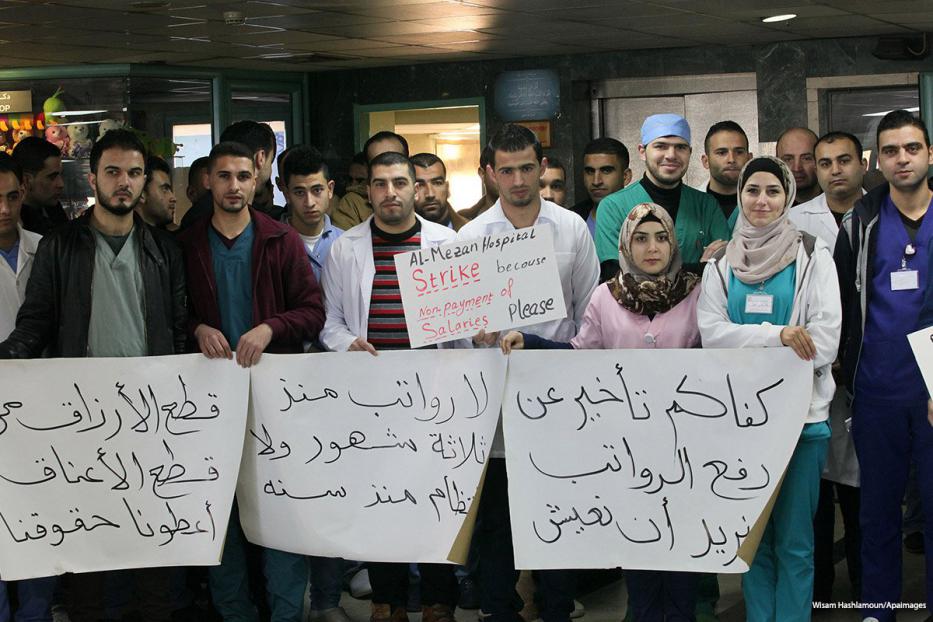 OP
AL-Mezan Hospital
Strike becouse
Non-payment of
Salaries Please
قطع الأرزاق من
قطع الأعناق
أعطونا حقوقنا
لا رواتب منذ
ثلاثة شهور ولا
نظام منذ سنه
كفاكم تأخير عن
رفع الرواتب
نريد أن نعيش
Wisam Hashlamoun/Apaimages